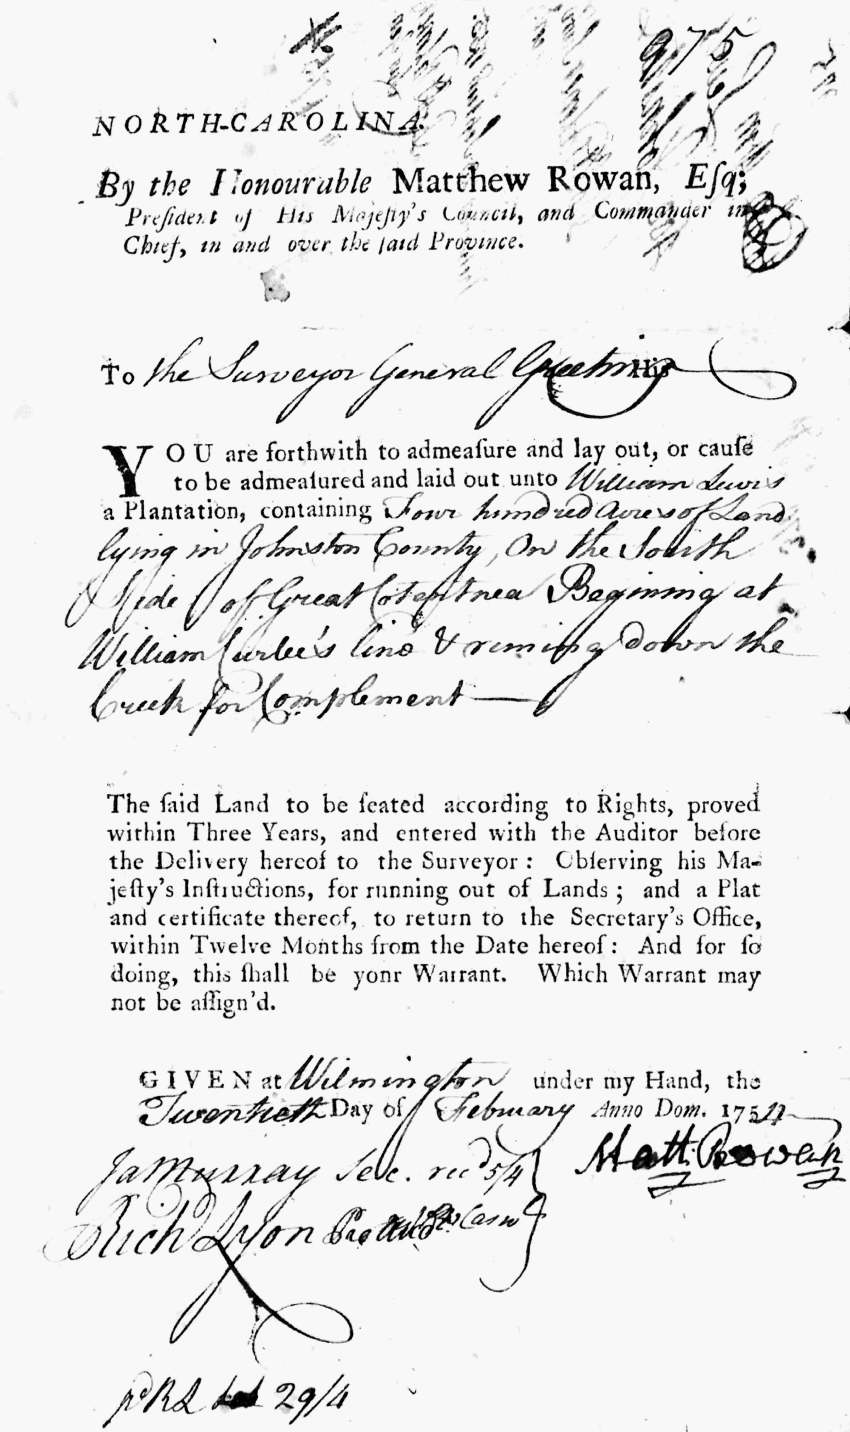 975
NORTH-CAROLINA.
By the Honourable Matthew Rowan, Eſq;
Preſident of His Majeſty's Council, and Commander in
Chief, in and over the ſaid Province.
To the Surveyor General Greeting
YOU are forthwith to admeaſure and lay out, or cauſe
to be admeaſured and laid out unto William Lewis
a Plantation, containing Four hundred Acres of Land
lying in Johnston County, On the South
Side of Great Cotentnea Beginning at
William Curlee's line & runing down the
Creek for Complement
The ſaid Land to be ſeated according to Rights, proved
within Three Years, and entered with the Auditor before
the Delivery hereof to the Surveyor: Obſerving his Ma-
jeſty's Inſtructions, for running out of Lands; and a Plat
and certificate thereof, to return to the Secretary's Office,
within Twelve Months from the Date hereof: And for ſo
doing, this ſhall be yonr Warrant. Which Warrant may
not be aſſign'd.
GIVEN at Wilmington under my Hand, the
Twentieth Day of February Anno Dom. 1754
Ja Murray Sec. recd 5/4 Matt: Rowan
Richd Lyon Pro
29/4